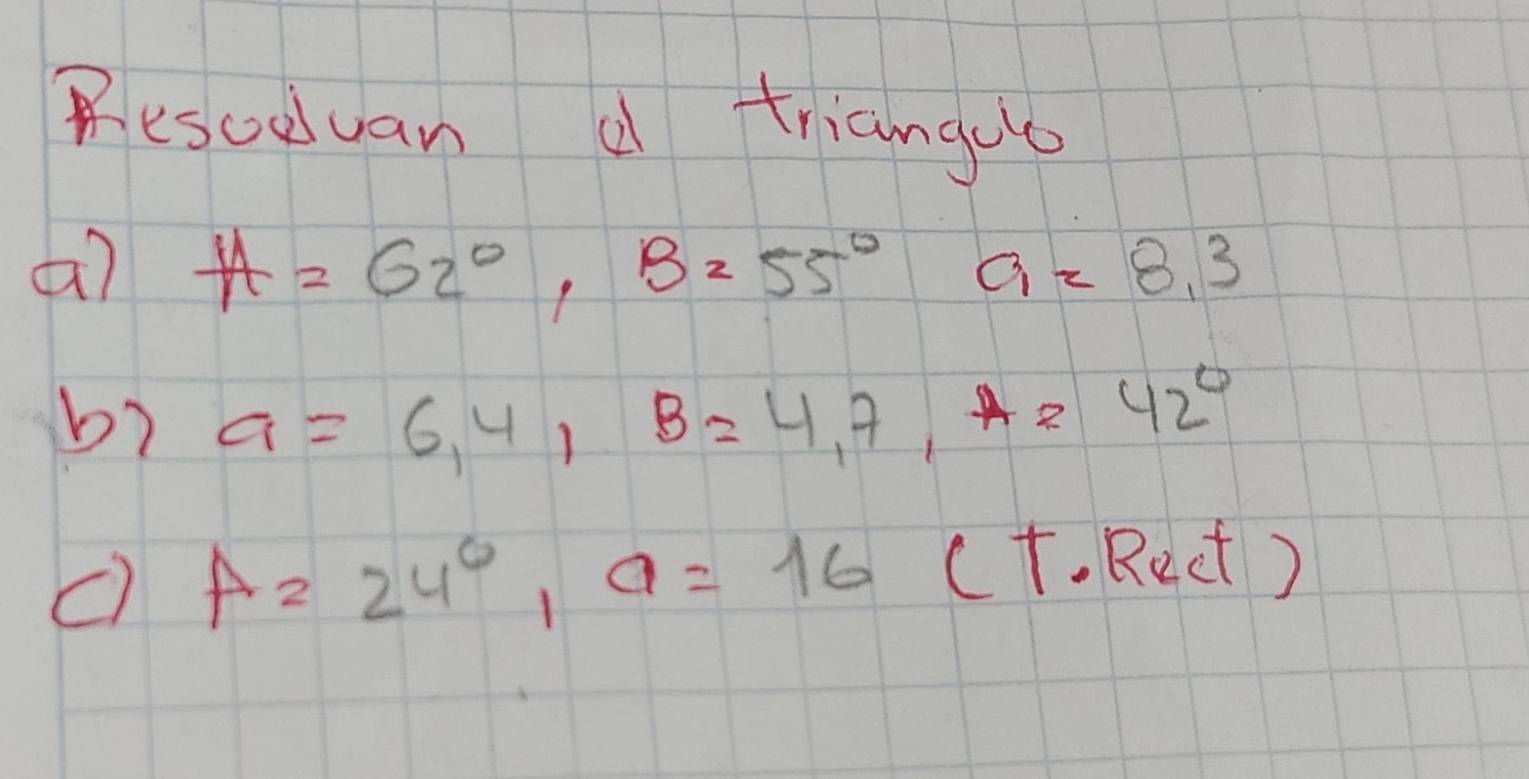 Resuelvan el triangulo
a) A = 62°, B = 55° a = 8,3
b) a = 6,4, B = 4,7, A = 42°
c) A = 24°, a = 16 (T. Rect)